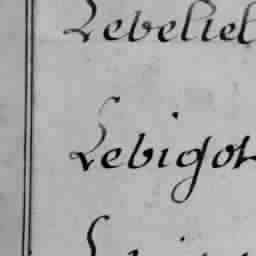 Lebeliel
Lebigot